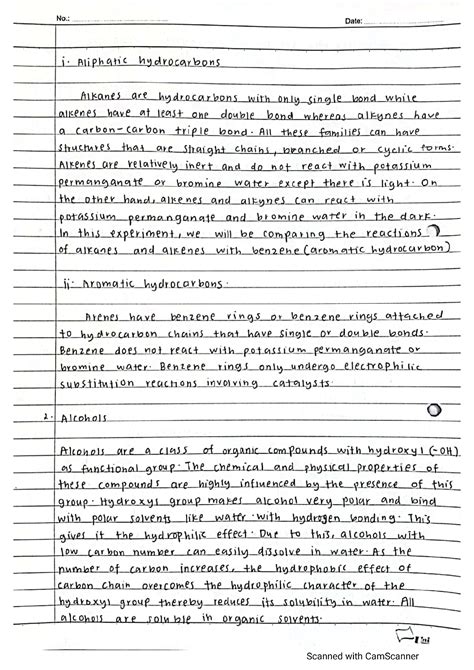 No.:
Date:
i. Aliphatic hydrocarbons
Alkanes are hydrocarbons with only single bond while
alkenes have at least one double bond whereas alkynes have
a carbon-carbon triple bond. All these families can have
structures that are straight chains, branched or cyclic forms.
Alkenes are relatively inert and do not react with potassium
permanganate or bromine water except there is light. On
the other hand, alkenes and alkynes can react with
potassium permanganate and bromine water in the dark.
In this experiment, we will be comparing the reactions
of alkanes and alkenes with benzene (aromatic hydrocarbon)
ii. Aromatic hydrocarbons.
Arenes have benzene rings or benzene rings attached
to hydrocarbon chains that have single or double bonds.
Benzene does not react with potassium permanganate or
bromine water. Benzene rings only undergo electrophilic
substitution reactions involving catalysts.
2. Alcohols
Alcohols are a class of organic compounds with hydroxyl (-OH)
as functional group. The chemical and physical properties of
these compounds are highly influenced by the presence of this
group. Hydroxyl group makes alcohol very polar and bind
with polar solvents like water with hydrogen bonding. This
gives it the hydrophilic effect. Due to this, alcohols with
low carbon number can easily dissolve in water. As the
number of carbon increases, the hydrophobic effect of
carbon chain overcomes the hydrophilic character of the
hydroxyl group thereby reduces its solubility in water. All
alcohols are soluble in organic solvents.
Scanned with CamScanner